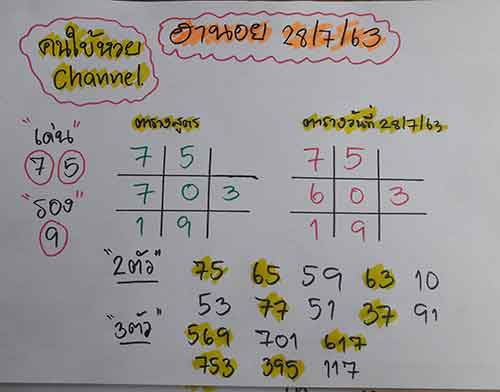 คนใบ้หวย
Channel
ฮานอย 28/7/63
"เด่น"
7 5
"รอง"
9
ตารางสูตร
7 5
7 0 3
1 9
ตารางวันที่ 28/7/63
7 5
6 0 3
1 9
"2ตัว" 75 65 59 63 10
53 77 51 37 91
"3ตัว" 569 701 617
753 395 117